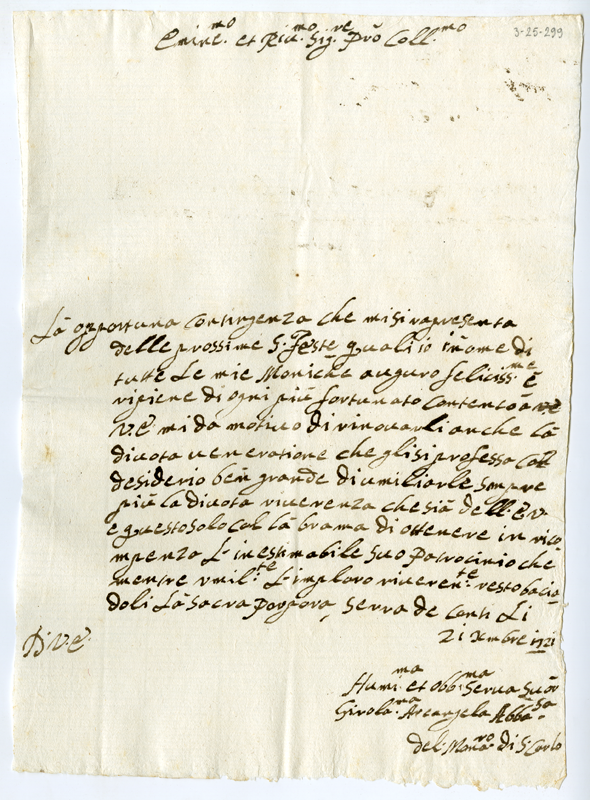 3-25-299
Emin.mo et R.mo Sig.re P̄rō Coll.mo
Là opportuna contingenza che mi si rapresenta
delle prossime S. Feste quali io in nome di
tutte Le mie Moniche auguro feliciss.me è
ripiene di ogni più fortunato contento à
V.E. mi da motivo di rinovarli anche là
divota veneratione che gli si professa col
desiderio ben grande di umiliarle sempre
più la divota riverenza che sià dell. E.V.
e questo solo col là brama di ottenere in rico
mpenza L'inestimabile suo Patrocinio che
mentre vmil.te L'imploro riveren.te resto bacia
doli Là Sacra Porpora, Serra de Conti Li
21 Xmbre 1721
D. V. E.
Humi.ma et obb.ma Serva Suōr
Girola.ma Arcangela Abba.sa
del Mona.ro di S. Carlo